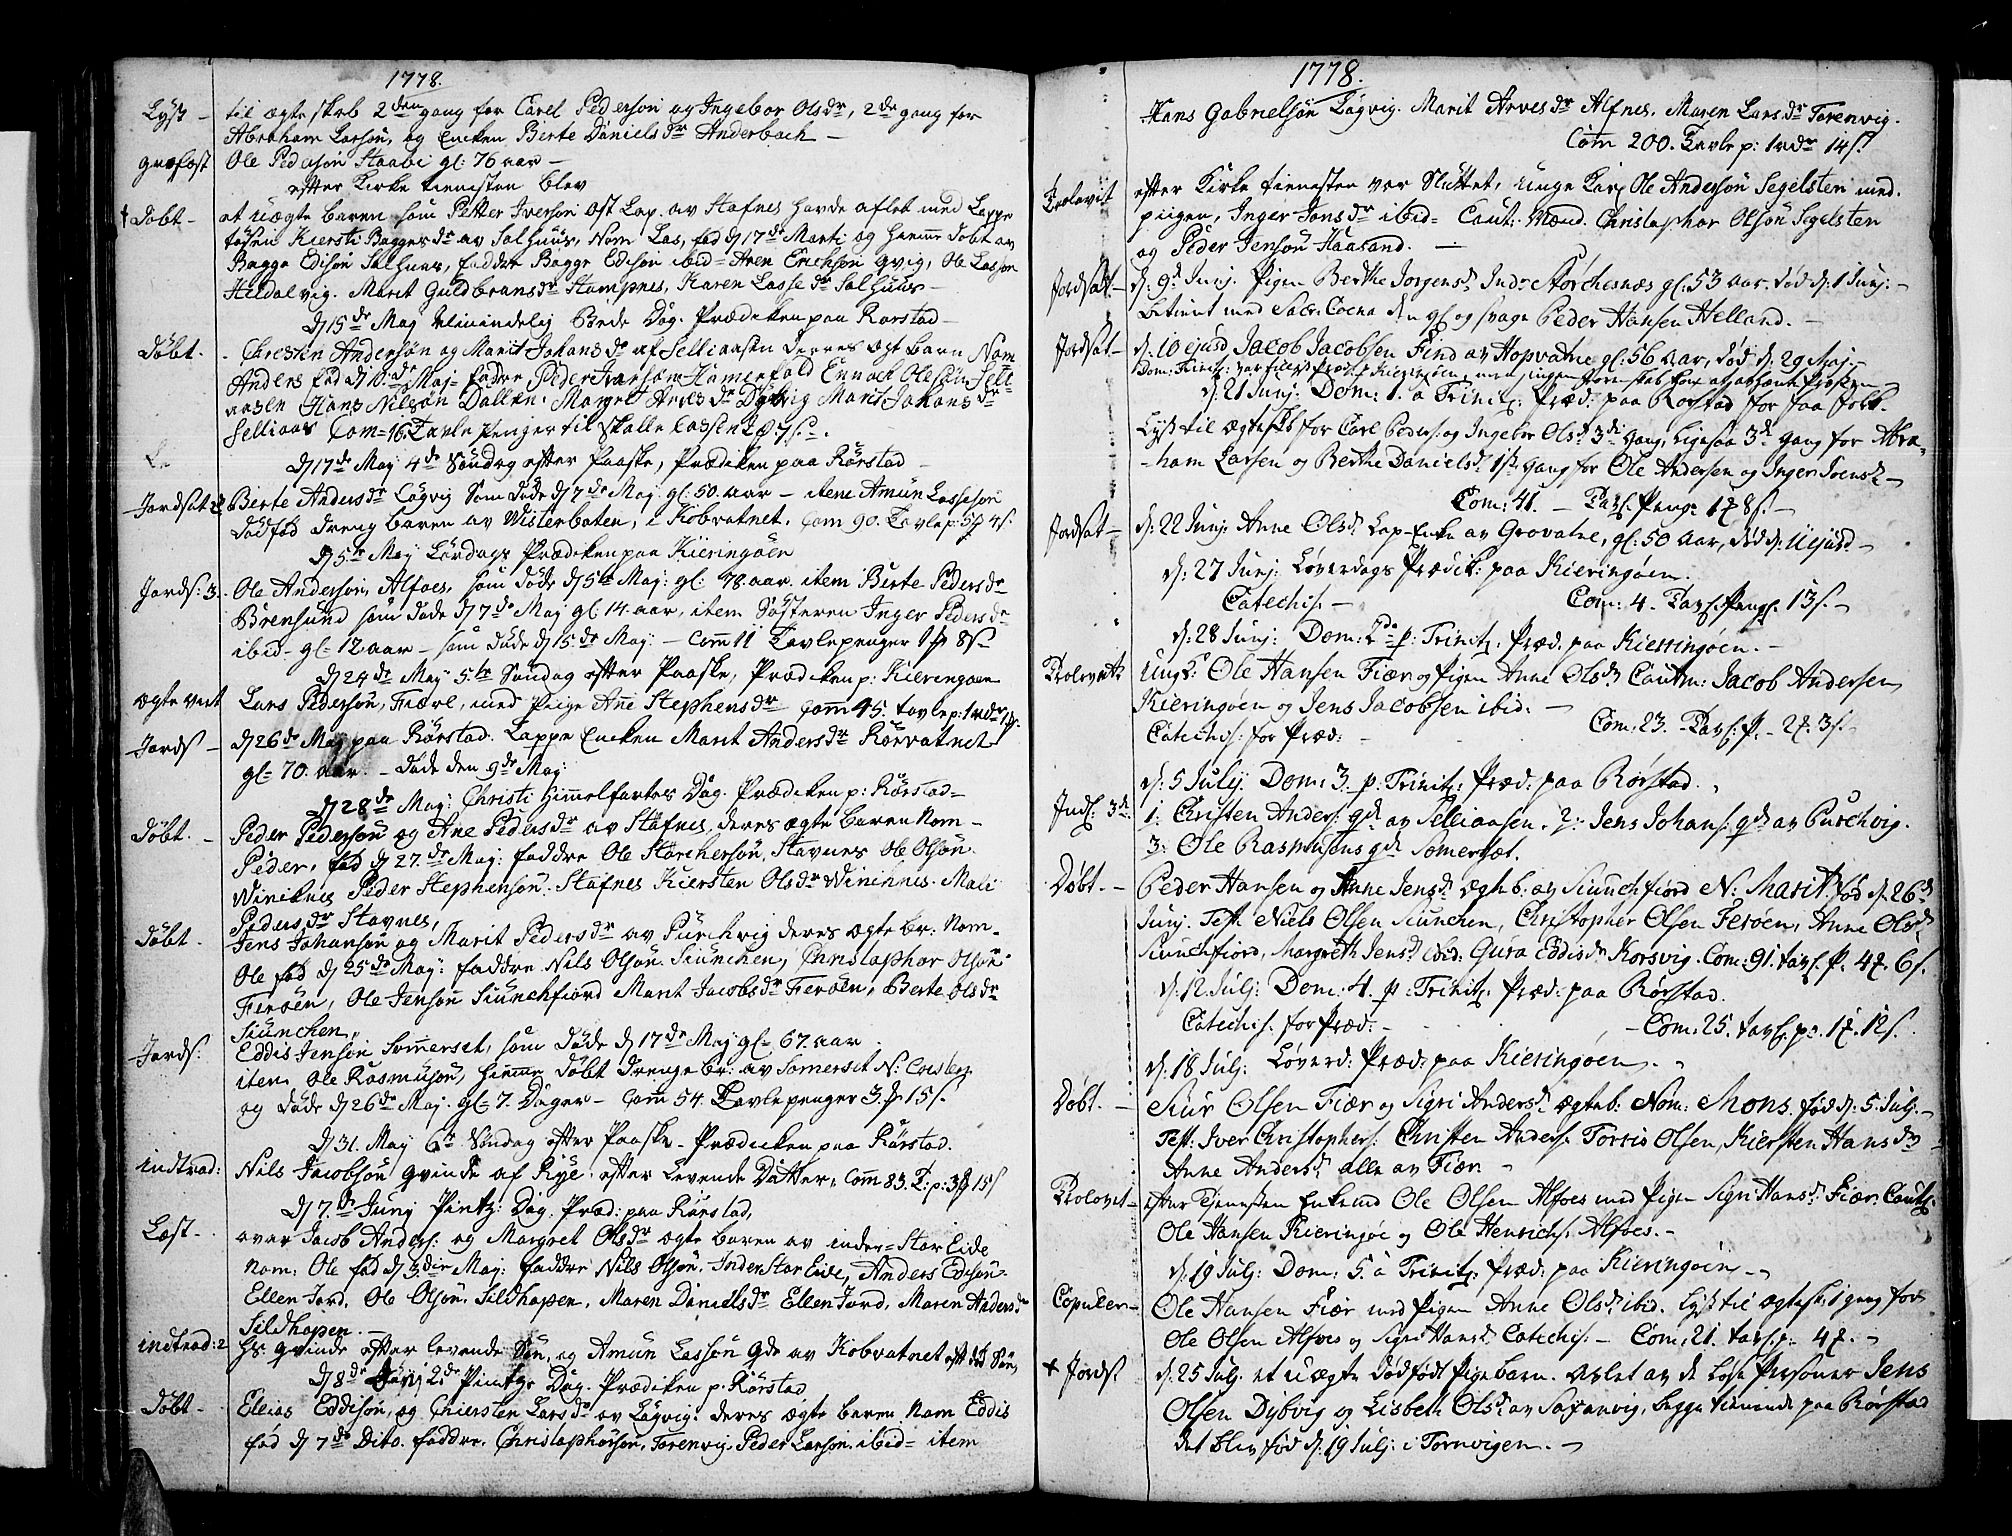 1778.
Lyst - til ægte skab 2den gang for Carel Pederson og Ingebor Olsdr, 2de gang for
Abraham Larson, og Encken Berte Daniels dr Anderbach -
græfæst Ole Pederson Staabi gl: 76 aar -
efter Kirke tienesten blev
† Døbt - et uægte baren som Petter Iverson Ost Lap. av Stafnes havde aflet med Lappe
tøsen Kiersti Baggesdr av Salhuus, Nom Las, fød d 17de Marti og hieme døbt av
Bagge Edison Salhuus, faddre Bagge Edison ibid= Aren Erichson qvig, Ole Lasson
Heldalvig. Marit Guldbransdr Stampnes, Karen Lasse dr Salhuus -
d 15de Maij Almindelig Bede Dag. Prædiken paa Rorstad -
Døbt. Christen Anderson og Marit Johansdr af Selliaasen deres ægt barn Nom
Anders fød d 10de Maij= fadre Peder Iverson Hamerfald Ennock Oleson Selli-
aasen Hans Nilson Dallen. Margret Arnsdr Dybvig Marit Johansdr
Selliaas Com=16. Tavle Penger til Skolle Cassen
d 17de Maij 4de Søndag efter Paaske, Prædiken paa Rørstad -
Jordsat 2 Berte Andersdr Løgvig Som døde d 7de Maij gl. 50. aar - item Amun Lasseson
dødfød dreng baren av Wisterboten, i Kobvatnet. Com 90. Tavle p: 4 s.
d 5te Maij Lørdags Prædiken paa Kieringøen
Jords: 3. Ole Anderson, Alfoes, som døde d 5te Maij: gl: 78 aar. item Berte Pedersdr
Brensund som døde d 7de Maij gl: 14. aar, item Søsteren Inger Pedersdr
ibid- gl= 12 aar - som døde d 15de Maij: - Com 11 Tavlepenger 1 8 s -
d 24de Maij 5te Søndag efter Paaske, Prædiken p: Kieringøen
ægte viet Lars Pederson, Fiære, med Piige Ane Stephensdr Com 45. tavle p: 1 rdr
Jords - d 26de Maij paa Rørstad. Lappe Encken Marit Andersdr Rørvatnet
gl= 70. aar. - døde den 9de Maij
d 28de Maij: Christi Himmelfartes Dag. Prædeken p: Rørstad=
Døbt. - Peder Pederson og Ane Pedersdr av Stafnes, deres ægte baren Nom-
Peder, fød d 27.de Maij: faddre Ole Storcherson, Stavnes Ole Olson.
Winiknes Peder Stephenson. Stafnes Kiersten Olsdr Winiknes. Mali
Pedersdr Stavnes,
Døbt. Jens Johanson og Marit Pedersdr av Purchvig deres ægte br: Nom-
Ole fød d 25de Maij: faddre Nils Olson. Siunchen, Christophar Olson
Ferøen, Ole Jenson Siunchfiord Marit Jacobsdr Ferøen, Berte Olsdr
Siunchen.
Jords: Eddis Jenson Sommerset, som døde d 17de Maij gl= 67. aar
item Ole Rasmuson, hieme døbt drenge br: av Somerset N:
og døde d 26de Maij. gl= 7. Dager - Com 54. Tavlepenger 3. 15 s.
d 31. Maij 6te Søndag efter Paaske - Prædicken paa Rørstad.
indtrad: Nils Jacobson qvinde af Rye, efter Levende Datter= Com 83. T: p: 3 15 s
d 7.de Junij Pintz: Dag. Præd: paa Rørstad,
Læst - over Jacob Anders: og Margret Olsdr ægte baren av inder=Stor Eide
Nom: Ole fød d 3.die Maij: faddre Nils Olson. Inder Stor Eide, Anders Edison
Ellen Jord, Ole Olson. Sildhopen, Maren Danielsdr Ellen Jord, Maren Andersdr
Sildhopen.
indtrad: 2 Hs: qvinde efter levende Søn, og Amun Lasson qde av Kobvatnet eft død Søn,
d 8de Junij 2de Pintze Dag. Prædiken p. Rørstad
Døbt - Eleias Eddison, og Chiersten Larsdr av Løgvig: deres ægte baren Nom Eddis
fød d 7de Dito. faddre. Christopharson, Torenvig Peder Larson. ibid= item
1778.
Hans Gabrielson Løgvig. Marit Arvesdr Alfnes. Maren Larsdr Torenvig.
Com 200. Tavle p: 1 rdr 14 s.
Trolovit efter Kirke tienesten var Sluttet, unge Karl Ole Anderson Segelsten med.
piigen, Inger Jonsdr ibid= Caut: Mænd. Christophar Olson Segelsten
og Peder Jenson Haarand. -
Jordsat - d. 9de Junij. Pigen Berthe Jorgensd. Indr Størchesnæs gl: 53 aar. død d: 1 Junij. -
betient med Sacr: Coena den gl og svage Peder Hansen Helland. -
Jordsat - d: 10 ejusd Jacob Jacobsen Find av Hopvatne gl: 56 aar, død d: 29 Maj -
Dom: Trinit: var
d: 21 Junij. Dom: 1. a Trinit: Præd: paa Rørstad for faa folk.
Lyst til ægteskb for Carl Peders: og Ingeber Olsd 3die gang, ligesaa 3die gang for Abra-
ham Larsen og Berthe Danielsd. 1ste gang for Ole Andersen og Inger Joensd -
Com: 41. - Tavl. Peng: 1 8 s. -
Jordsat - d: 22 Junij: Anne Olsd. Lap-Enke av Grovatne, gl: 50 aar, død d: 11 ejusd -
d: 27 Junij: Løverdags Prædik: paa Kieringøen.
Catechis. - Com: 4 - Tavl: Peng. 13 s. -
d: 28 Junij: Dom: 2de p: Trinit: Præd. paa Kierringøen. -
Trolovet Ungk: Ole Hansen Fiær og Pigen Anne Olsd. Cautm: Jacob Andersen
Kieringøen og Jens Jacobsen ibid: -
Catechis: for Præd: - Com: 23. - Tavl: p. - 2 3 s. -
d: 5 Julij Dom: 3. p: Trinit: Præd: paa Rørstad.
Indl: 3de 1: Christen Anders: qd av Selliaasen. 2: Jens Johans. qd av Purchvig.
3: Ole Rasmusens qd Somerset.
Døbt. - Peder Hansen og Anne Jensd. ægteb. av Siunchfiord N: Marit fød d: 26de
Junij. Test: Niels Olsen Siunchen, Christopher Olsen Ferøen, Anne Olsd
Siunchfiord, Margreth Jensd. ibid: Gura Eddisd. Korsvig. Com: 91. tavl. p. 4 6 s.
d: 12 Julij: Dom: 4. p: Trinit: Præd: paa Rørstad.
Catechis. for Præd: - Com: 25. tavl. p. 1 12 s.
d: 18 Julij: Løverd: Præd: paa Kieringøen.
Døbt. - Siur Olsen Fiær og Sigri Andersd. ægteb: Nom: Mons. fød d: 5 Julij. -
Test: Iver Christophers: Christen Anders: Torris Olsen, Kiersten Hansdr
Anne Andersd alle av Fiær -
Trolovit - efter Tienesten Enkemd Ole Olsen Alfoes med Pigen Sigri Hansd. Fiær. Caut:
Ole Hansen Kieringøe og Ole Henrichs. Alfoes. -
d: 19 Julij: Dom: 5. a Trinit: Præd: paa Kieringøen -
Copuler - Ole Hansen Fiær med Pigen Anne Olsd. ibid. Lyst til ægtesk: 1 gang for
Ole Olsen Alfoes og Sigri Hansd. Catechis. - Com: 21. tavl. p. 4 -
+ Jords. d: 25 Julij. et uægte dødfødt Pigebarn. avlet av de løse Personer Jens
Olsen Dybvig og Lisbeth Olsd. av Saxenvig, begge tienende paa Rørstad
det blev fød d: 19 Julij: i Tornvigen. -